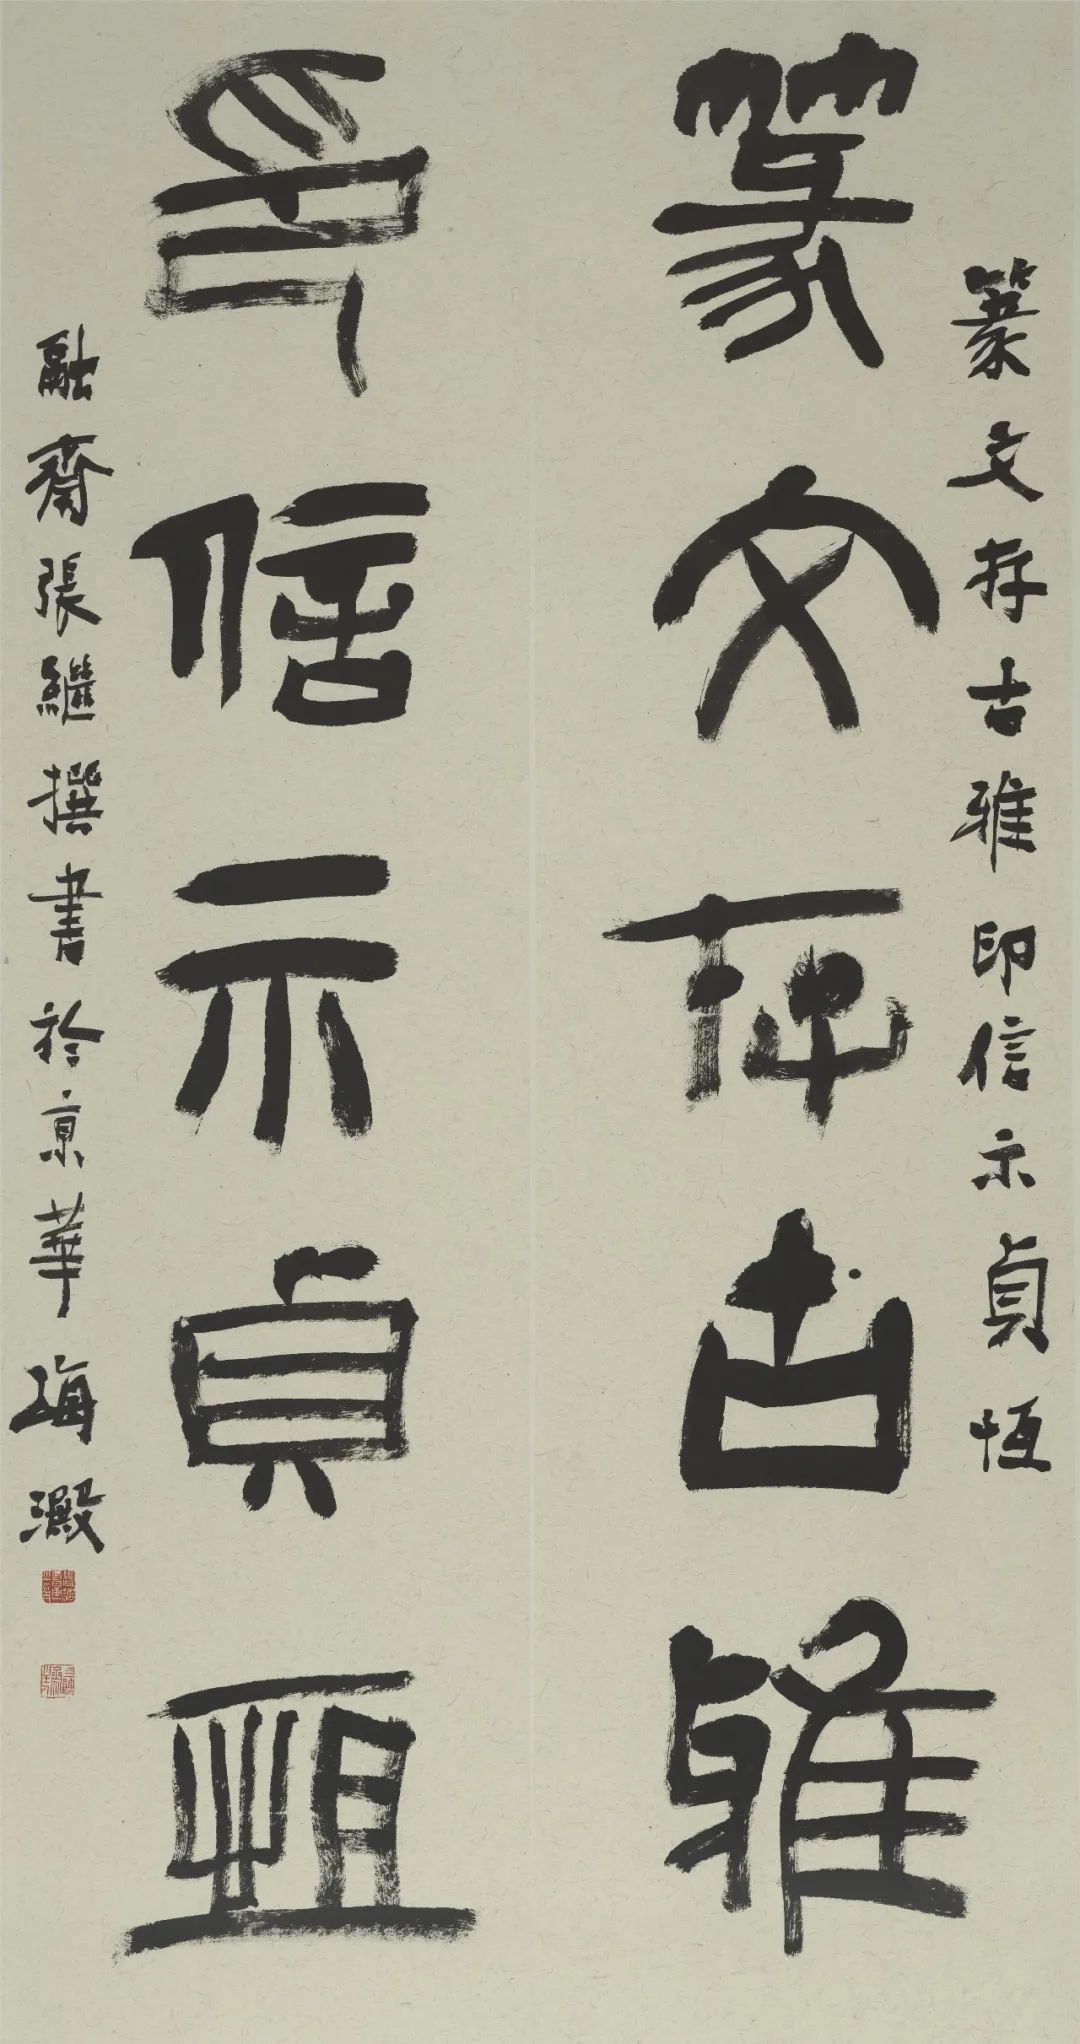 篆文存古雅印信示貞恆
篆文存古雅
印信示貞恆
融齋張繼撰書於京華海澱